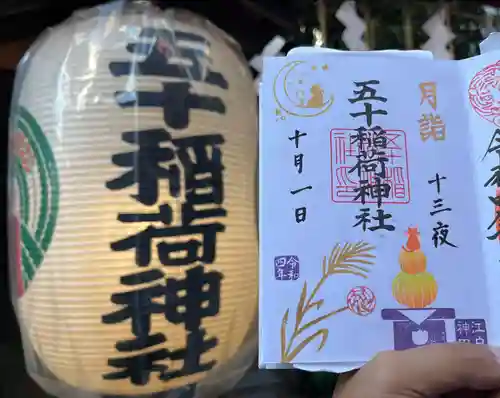 五十稲荷神社
月詣
五十稲荷神社
十三夜
十月一日
令和
四年
江戸
神田